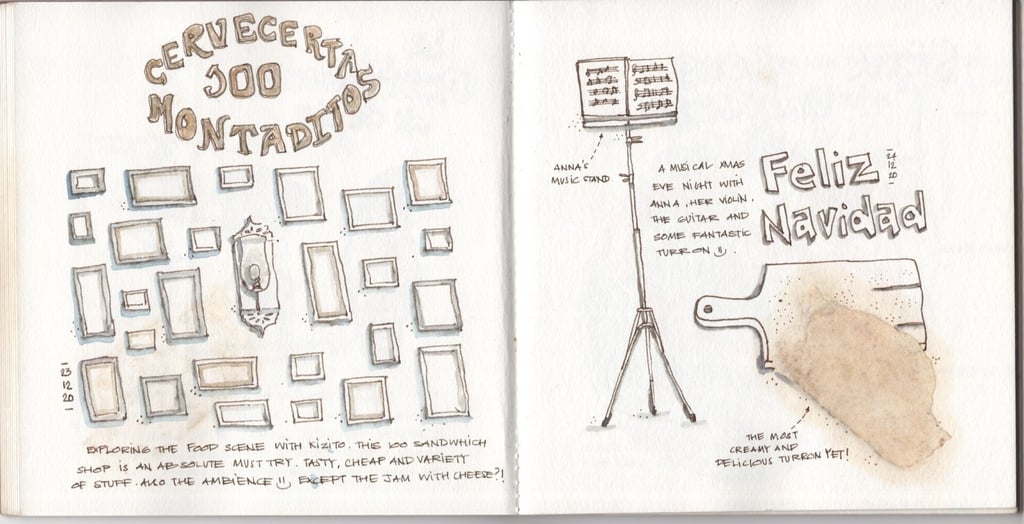 CERVECERTAS
100
MONTADITOS
23
12
20
EXPLORING THE FOOD SCENE WITH KIZITO. THIS 100 SANDWHICH
SHOP IS AN ABSOLUTE MUST TRY. TASTY, CHEAP AND VARIETY
OF STUFF. ALSO THE AMBIENCE EXCEPT THE JAM WITH CHEESE?!
ANNA'S
MUSIC STAND
A MUSICAL XMAS
EVE NIGHT WITH
ANNA, HER VIOLIN.
THE GUITAR AND
SOME FANTASTIC
TURRON
Feliz
Navidad
24
12
20
THE MOST
CREAMY AND
DELICIOUS TURRON YET!